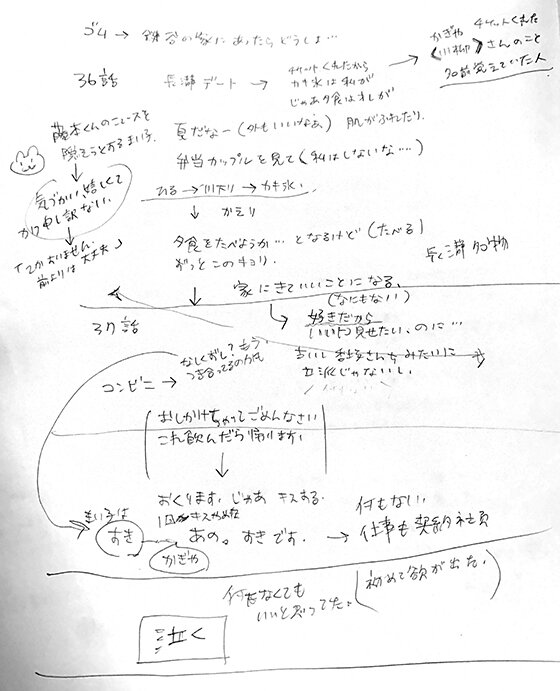 ゴム → 鉄谷の家にあったらどうしよ…
チケットくれた
かぎや
さんのこと
覚えていた人
36話
長瀞デート →
チケットくれたから
カキ氷は私が
じゃあ夕食はオレが
藤本くんのニュースを
隠そうとするまい子。
夏だなー(外もいいなぁ) 肌がふれたり。
弁当カップルを見て(私はしないな…)
気づかい、嬉しくて
かつ申し訳ない。
ひる→川下り→カキ氷。
かえり
「つかいません。
前よりは大丈夫」
夕食をたべようか…となるけど(たべる)
ずっとこのキョリ。
長瀞 名物
家にきていいことになる。
(なにもない)
37話
好きだから
いいトコ見せたい、のに…
みたいに
立派じゃないし。
コンビニ →
なしくずし?もう、
つき合ってるのかも
おしかけちゃってごめんなさい
これ飲んだら帰ります。
おくります。じゃあ キスする。
まい子は
すき
あの。すきです。
かぎや
→ 何もない。
仕事も契約社員
何もなくても
いいと思ってた。
(初めて欲が出た。)
泣く